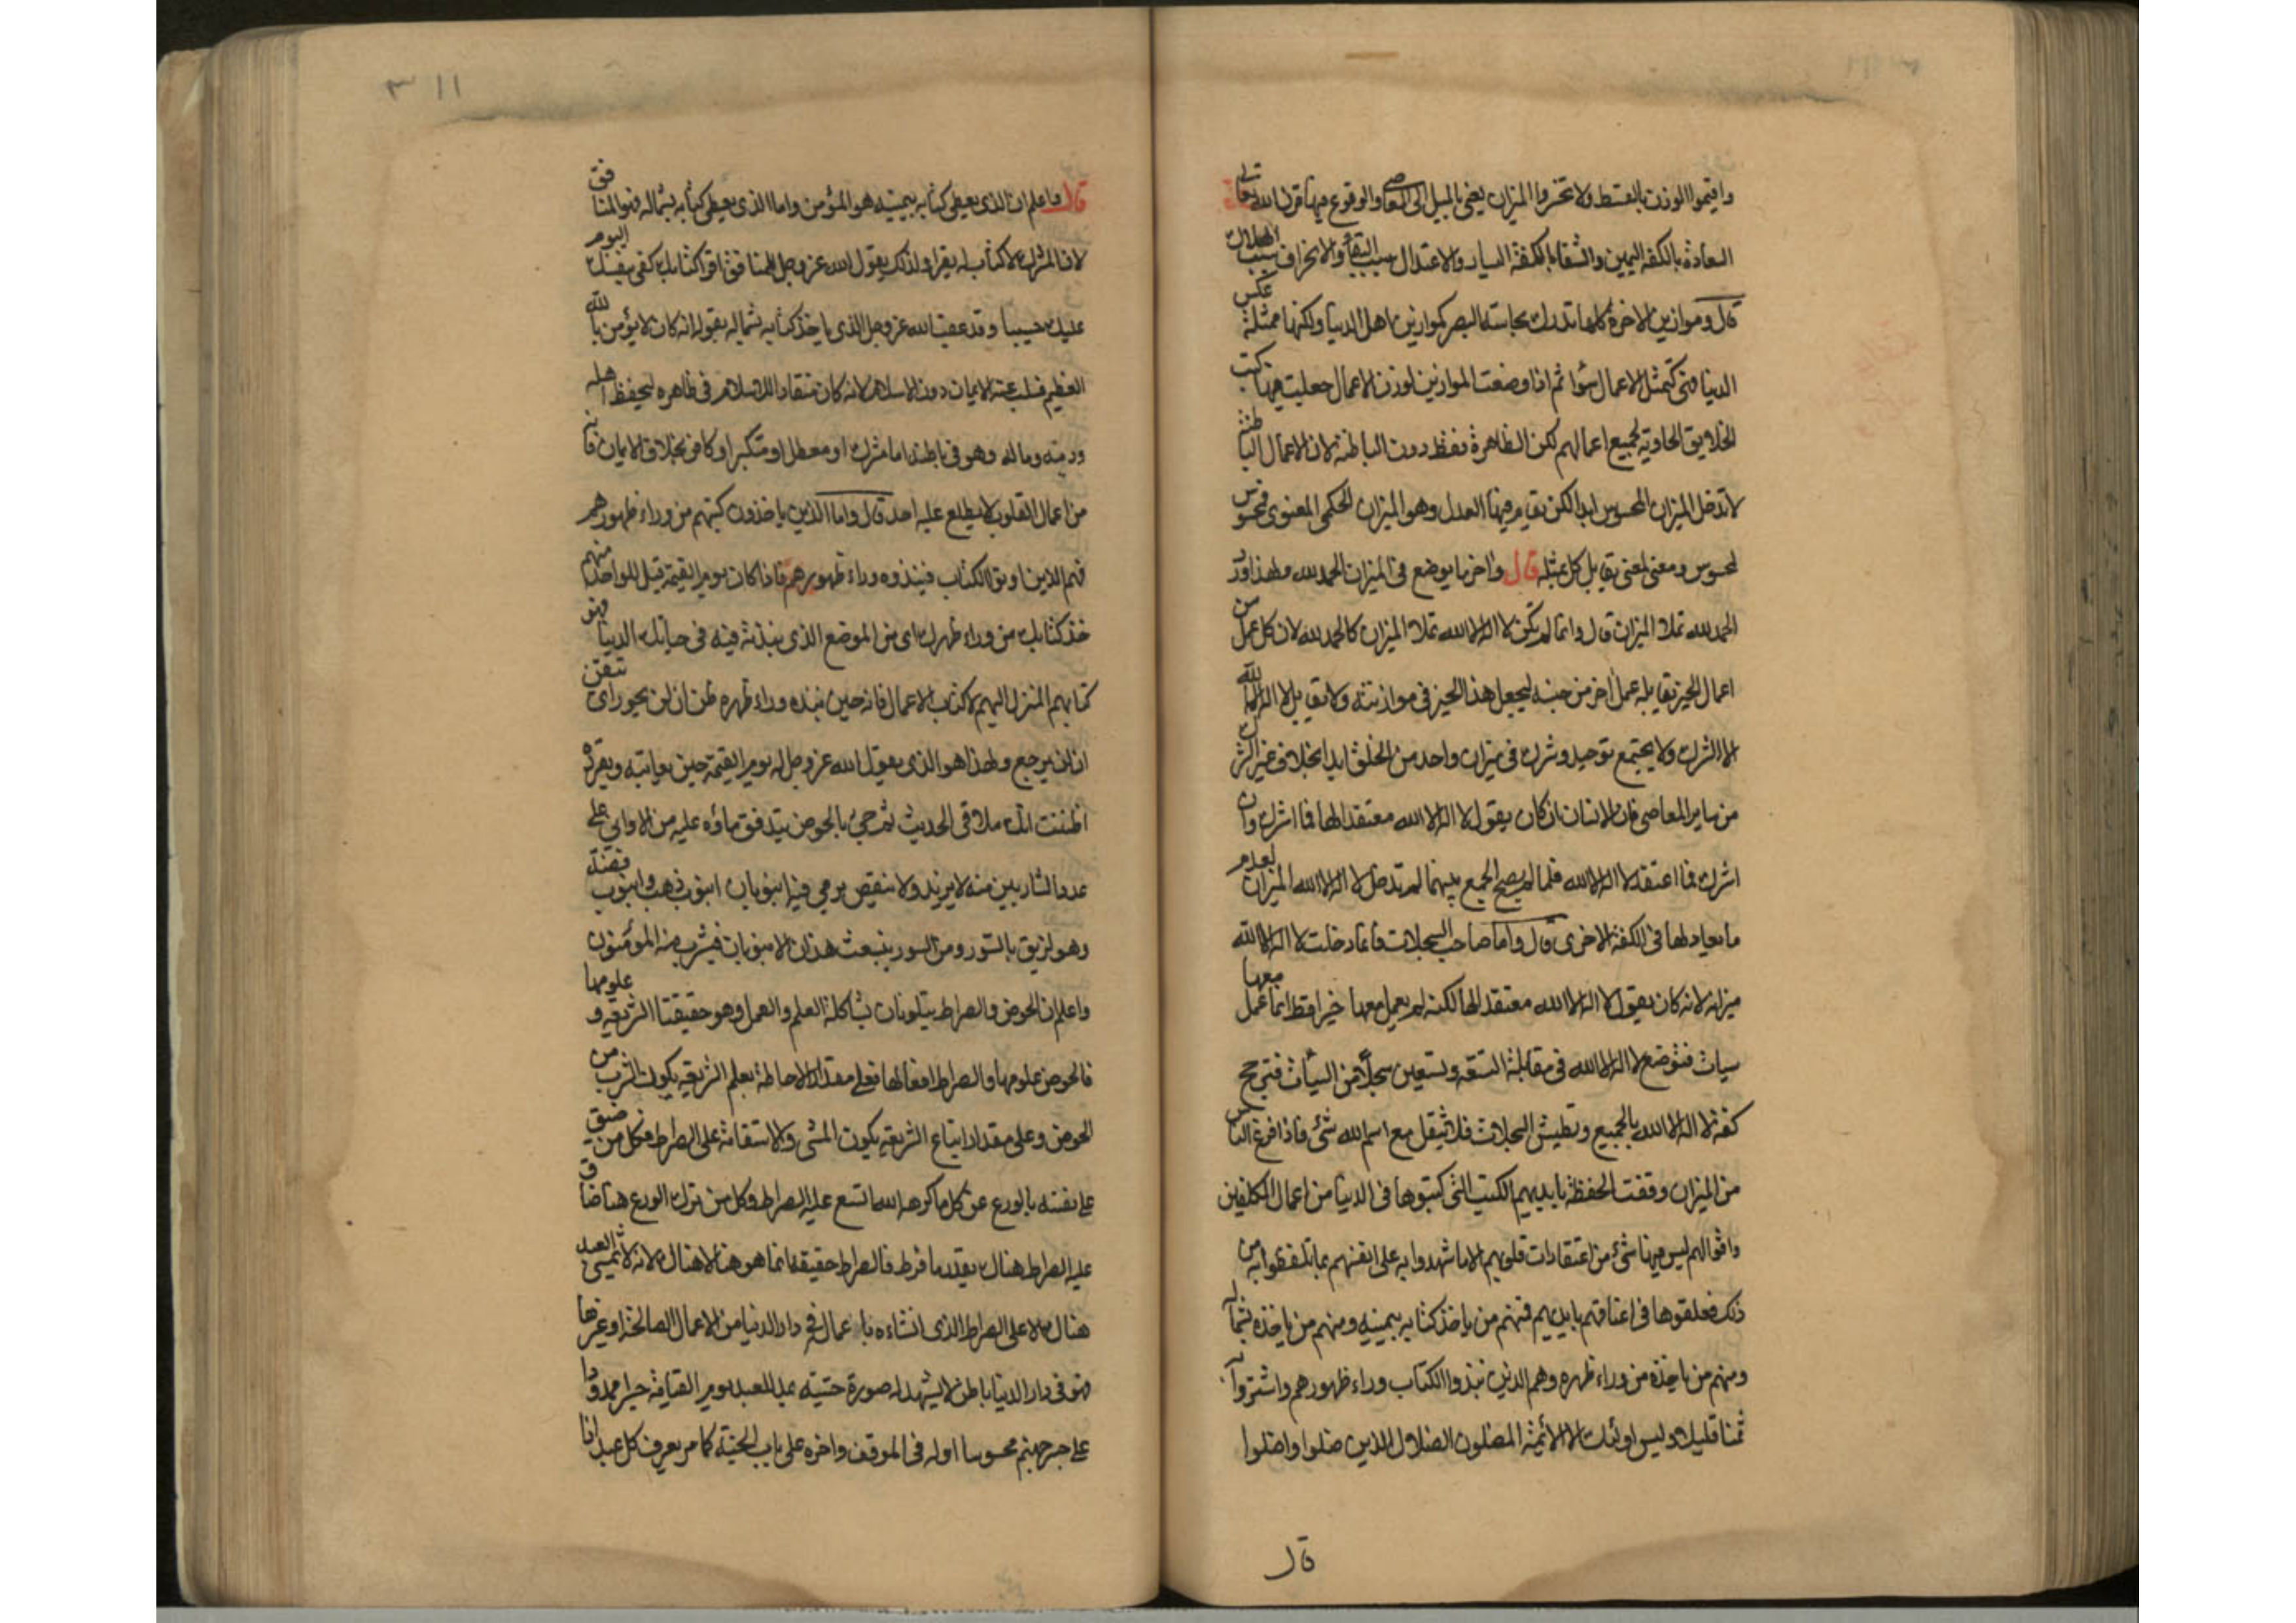 واقيموا الوزن بالقسط ولا تخسروا الميزان يعني بالميل الى المعاصي والوقوع فيها قرن الله تعالى
السعادة بالكفة اليمين والشقا بالكفة اليسار والاعتدال سبب البقا والانحراف سبب الهلاك
قال وموازين الاخرة كلها تدرك بحاسة البصر كموازين اهل الدنيا ولكنها ممثلة عكس
الدنيا فهي كتمثل الاعمال سوا ثم اذا وضعت الموازين لوزن الاعمال جعلت فيها كتب
الخلايق الحاوية لجميع اعمالهم لكن الظاهرة فقط دون الباطنة لان الاعمال الباطنة
لا تدخل الميزان المحسوس ابدا لكن تقام فيها العدل وهو الميزان الحكمي المعنوي فمحسوس
لمحسوس ومعنى لمعنى يقابل كل بمثله قال واخر ما يوضع في الميزان الحمد لله ولهذا ورد
الحمد لله تملا الميزان قال وانما لم تكن لا اله الا الله تملا الميزان كالحمد لله لان كل عمل من
اعمال الخير يقابله عمل اخر من جنسه ليجعل هذا الخير في موازنته ولا يقابل لا اله الا الله
الا الشرك ولا يجتمع توحيد وشرك في ميزان واحد من الخلق ابدا بخلاف غير الشرك
من ساير المعاصي فان الانسان ان كان يقول لا اله الا الله معتقدا لها فما اشرك وان
اشرك فما اعتقد لا اله الا الله فلما لم يصح الجمع بينهما لم تدخل لا اله الا الله الميزان لعدم
ما يعادلها في الكفة الاخرى قال واما صاحب السجلات فانما دخلت لا اله الا الله
ميزانه لانه كان يقول لا اله الا الله معتقدا لها لكنه لم يعمل معها خيرا قط انما عمل معها
سيات فتوضع لا اله الا الله في مقابلة التسعة وتسعين سجلا من السيأت فترجح
كفة لا اله الا الله بالجميع وتطيش السجلات فلا يثقل مع اسم الله شئ فاذا فرغ الناس
من الميزان وقفت الحفظة بايديهم الكتب التي كتبوها في الدنيا من اعمال المكلفين
واقوالهم ليس فيها شئ من اعتقادات قلوبهم الا ما شهدوا به على انفسهم بما تلفظوا به من
ذلك فعلقوها في اعناقهم بايديهم فمنهم من ياخذ كتابه بيمينه ومنهم من ياخذه بشماله
ومنهم من ياخذه من وراء ظهره وهم الذين نبذوا الكتاب وراء ظهورهم واشتروا به
ثمنا قليلا وليس اولئك الا الأئمة المضلون الضلال الذين ضلوا واضلوا
قال
قال واعلم ان الذي يعطى كتابه بيمينه هو المؤمن واما الذي يعطى كتابه بشماله فهو المنافق
لان المشرك لا كتاب له يقرا ولذلك يقول الله عز وجل للمنافق اقرا كتابك كفى بنفسك اليوم
عليك حسيبا وقد عقب الله عز وجل الذي ياخذ كتابه بشماله بقوله انه كان لا يؤمن بالله
العظيم فسلب عنه الايمان دون الاسلام لانه كان منقادا للاسلام في ظاهره ليحفظ اهله
ودينه وماله وهو في باطنه اما مشرك او معطل او متكبر او كافر بخلاف الايمان فانه
من اعمال القلوب لا يطلع عليه احد قال واما الذين ياخذون كتبهم من وراء ظهورهم
فهم الذين اوتوا الكتاب فنبذوه وراء ظهورهم فاذا كان يوم القيمة قيل للواحد منهم
خذ كتابك من وراء ظهرك اي من الموضع الذي نبذته فيه في حياتك الدنيا فهو
كتابهم المنزل اليهم لا كتاب الاعمال فانه حين نبذه وراء ظهره ظن ان لن يحور اي تيقن
ان لن يرجع ولهذا هو الذي يقول الله عز وجل له يوم القيمة حين يعاتبه ويقرره
اظننت انك ملاقي الحديث ثم جئ بالحوض يتدفق ماؤه عليه من الاواني على
عدد الشاربين منه لا يزيد ولا ينقص يرمي فيه انبوبان انبوب ذهب وانبوب فضة
وهو لزيق بالسور ومن السور ينبعث هذان الانبوبان فيشرب منه المومنون
واعلم ان الحوض والصراط يتلونان بشاكلة العلم والعمل وهو حقيقتا الشريعة و علومها
فالحوض علومها والصراط افعالها فعلى مقدار الاحاطة بعلم الشريعة يكون الشرب من
الحوض وعلى مقدار اتباع الشريعة يكون المشي والاستقامة على الصراط فكل من ضيق
على نفسه بالورع عن كل ما كرهه الله اتسع عليه الصراط وكل من ترك الورع هنا ضاق
عليه الصراط هناك بقدر ما فرط فالصراط حقيقة انما هو هنا لا هناك لانه لا يمشي العبد
هناك الا على الصراط الذي انشاءه باعماله في دار الدنيا من الاعمال الصالحة او غيرها
فهو في دار الدنيا باطن لا يشهد له صورة حسية يمد للعبد يوم القيامة جسرا ممدودا
على جسر جهنم محسوسا اوله في الموقف واخره على باب الجنة كما مر يعرف كل عبد اذا